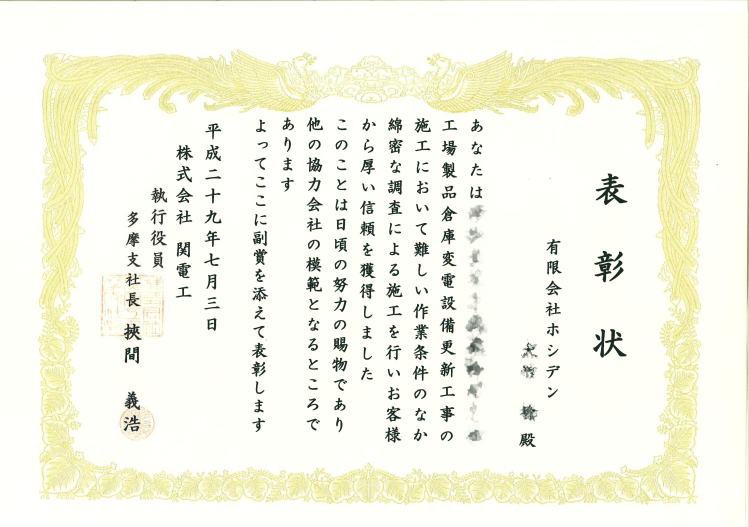 表彰状
有限会社ホシデン
殿
あなたは
工場製品倉庫変電設備更新工事の
施工において難しい作業条件のなか
綿密な調査による施工を行いお客様
から厚い信頼を獲得しました
このことは日頃の努力の賜物であり
他の協力会社の模範となるところで
あります
よってここに副賞を添えて表彰します
平成二十九年七月三日
株式会社 関電工
執行役員
多摩支社長 挾間 義浩